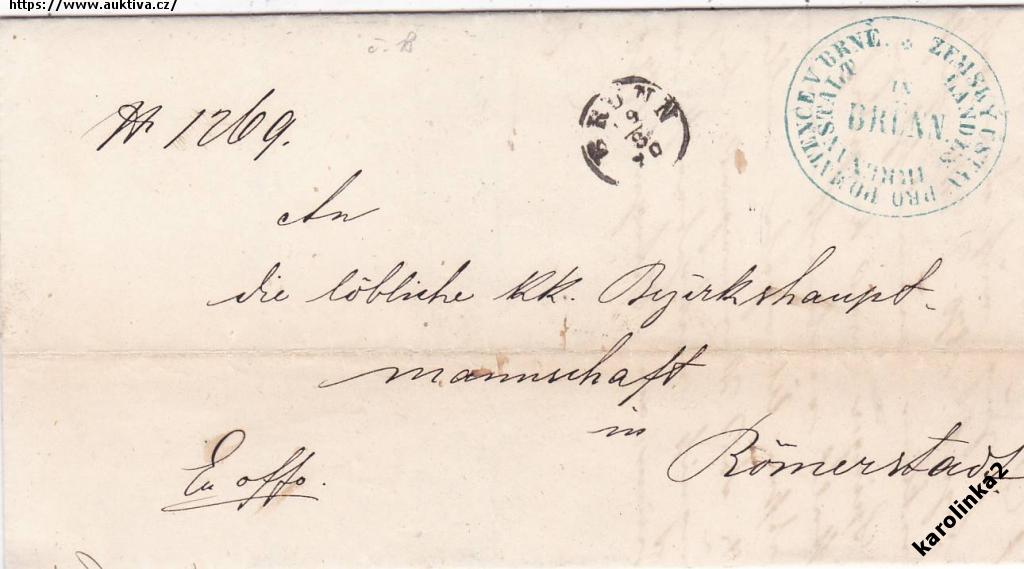 https://www.auktiva.cz/
č. B
№ 1269.
BRÜNN
9/8
ZEMSKÝ ÚSTAV PRO POMATENCE V BRNĚ.
LANDES IRRENANSTALT
IN
BRÜNN
An
die löbliche kk. Bezirkshaupt-
mannschaft
in
Römerstadt
Ex offo.
karolinka2